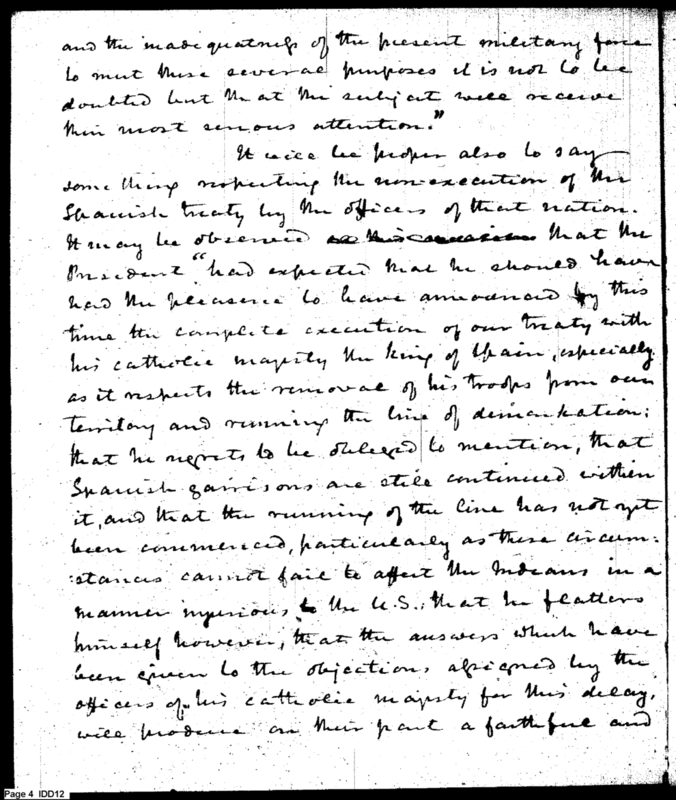 and the inadequatness of the present military force
to meet these several purposes it is not to be
doubted but that the subject will receive
their most serious attention."
It will be proper also to say
something respecting the non execution of the
Spanish treaty by the officers of that nation.
It may be observed that the
President "had expected that he should have
had the pleasure to have announced by this
time the complete execution of our treaty with
his catholic majesty the king of Spain, especially
as it respects the removal of his troops from our
territory and running the line of demarkation:
that he regrets to be obleged to mention, that
Spanish garrisons are still continued within
it, and that the running of the line has not yet
been commenced, particularly as these circum:
:stances cannot fail to affect the Indians in a
manner injurious to the U.S.; that he flatters
himself however, that the answers which have
been given to the objections assigned by the
officers of his catholic majesty for this delay,
will produce on their part a faithful and
Page 4 IDD12